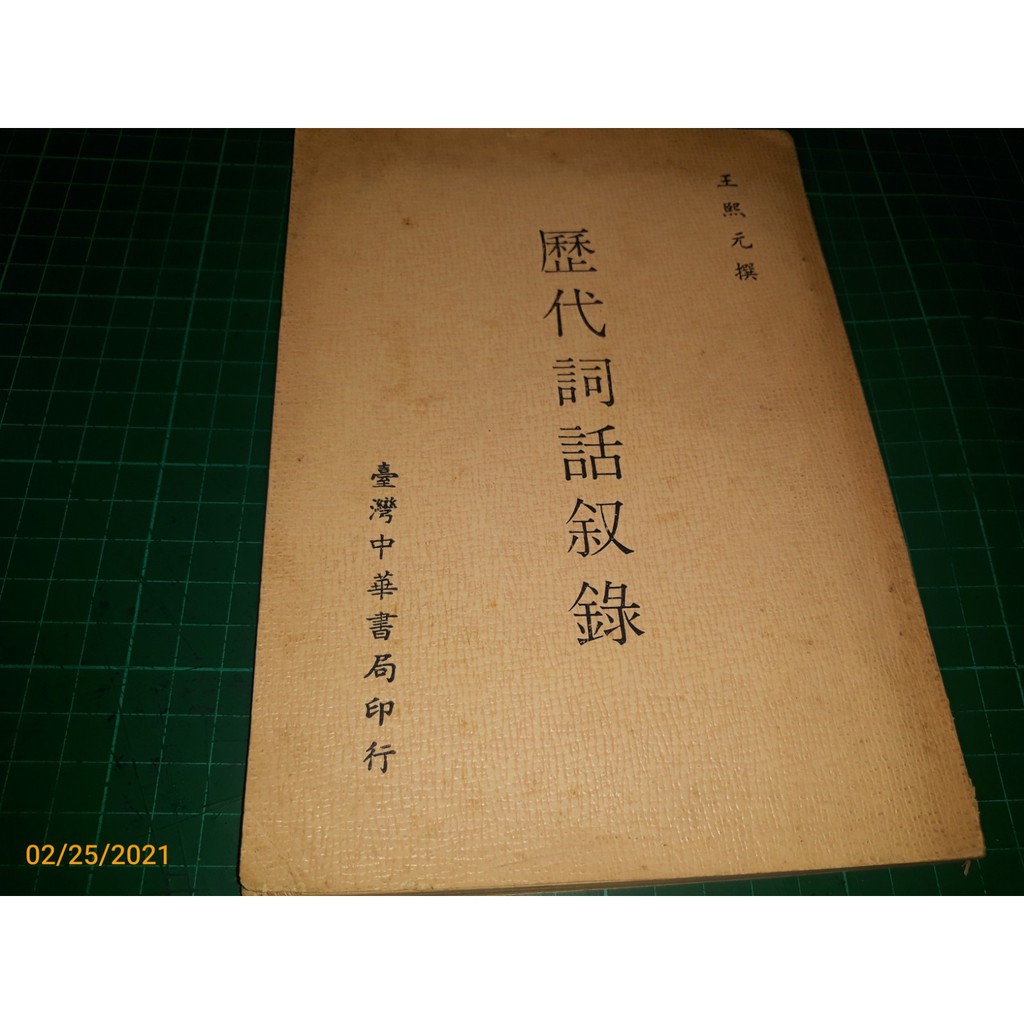 王熙元撰
歷代詞話叙錄
臺灣中華書局印行
02/25/2021